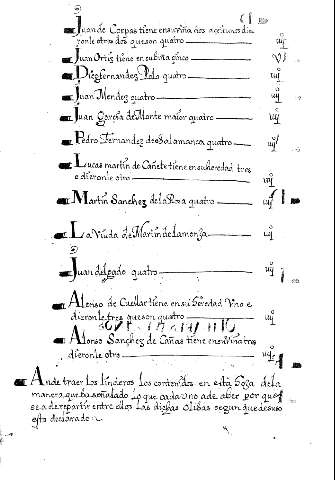 Juan de Corpas tiene en su viña dos açeitunos dié
ronle otros dos que son quatro iiijº
Juan Ortiz tiene en su biña çinco vº
Diego fernandez Polo quatro iiijº
Juan Mendez quatro iiijº
Juan Garçia de Monte maior quatro iiijº
Pedro Fernandez de Salamanca quatro iiijº
Lucas martin de Cañete tiene en su heredad tres
e dieronle otro iiijº
Martin Sanchez de la Rosa quatro iiijº
La Viuda de Martin de la monja iiijº
Juan delgado quatro iiijº
Alonso de Cuellar tiene en su heredad Uno e
dieronle tres que son quatro iiijº
Alonso Sanchez de Cañas tiene en su viña tres
dieronle otro iiijº
Ande traer los linderos los contenidos en esta hoja de la
manera que ba señalado lo que cada vno a de aber por que
se a de repartir entre ellos las dichas olibas segun que de suso
esta declarado